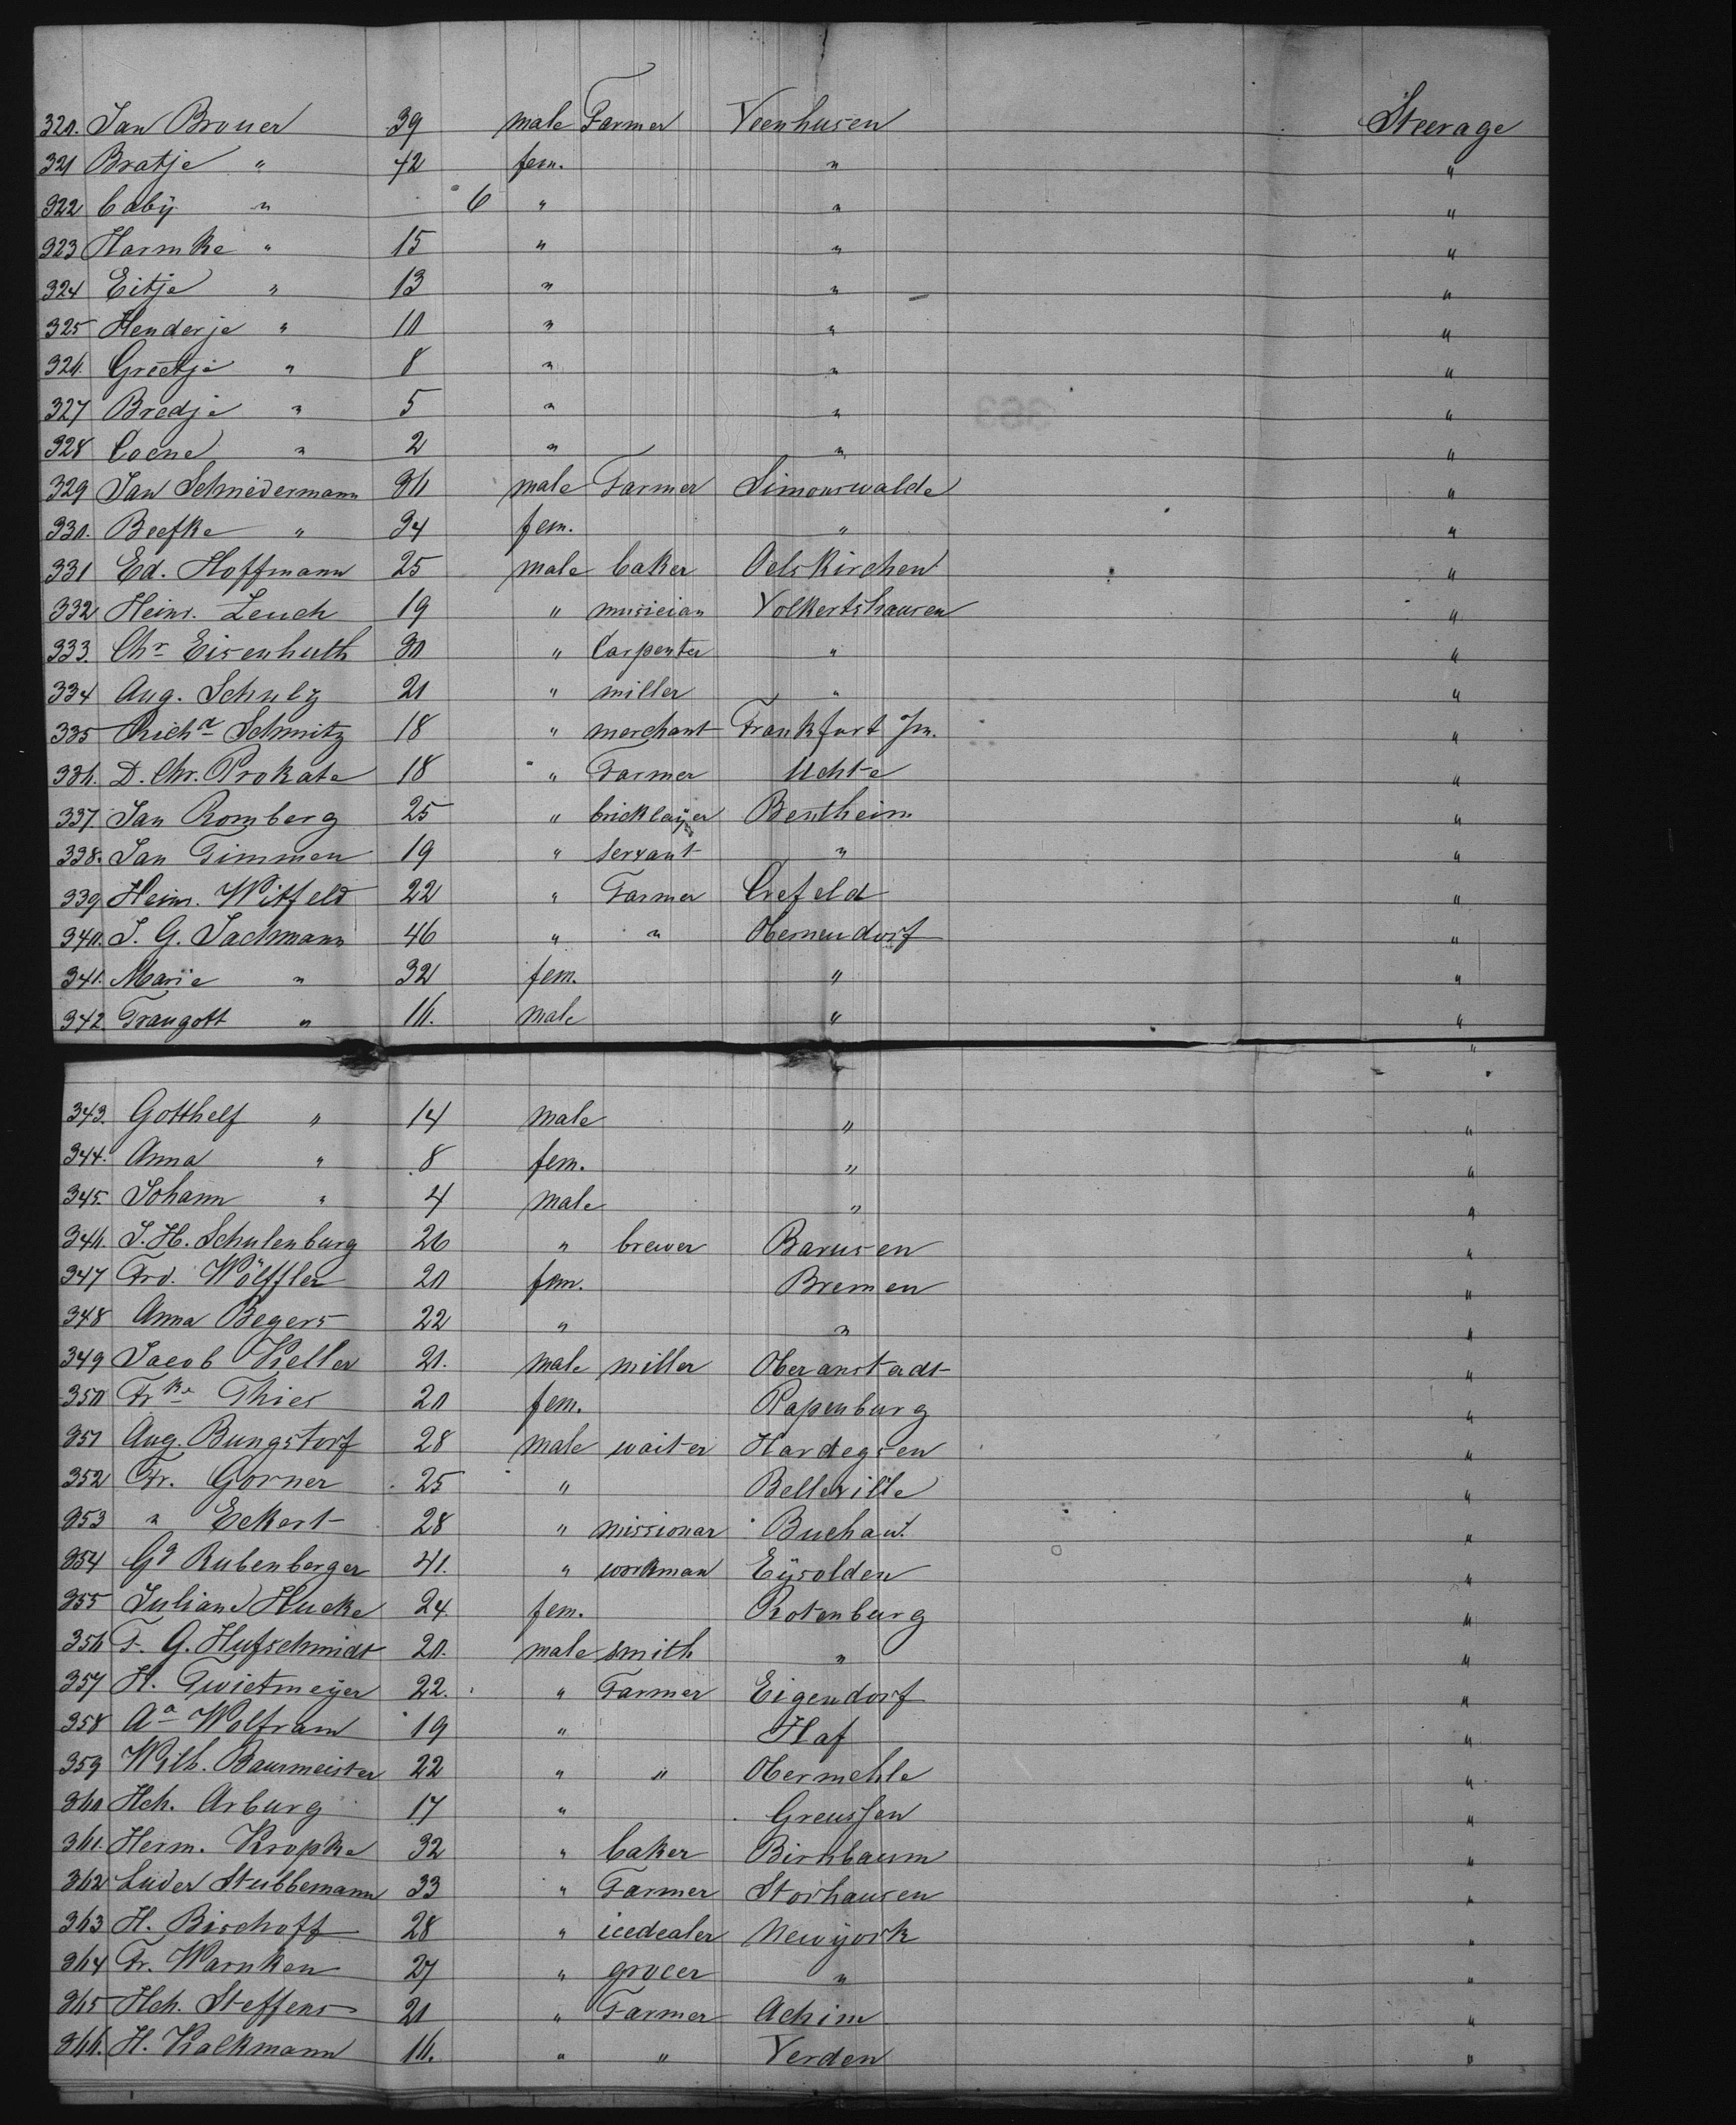 320. Jan Brouer 39 male Farmer Veenhusen Steerage
321 Bratje " 42 fem. " "
322 baby " 6 " " "
323 Harmke " 15 " " "
324 Eitje " 13 " " "
325 Henderje " 10 " " "
326. Greetje " 8 " " "
327 Bredje " 5 " " "
328 Coene " 2 " " "
329 Jan Schmidermann 36 male Farmer Simonswalde "
330. Beefke " 34 fem. " "
331 Ed. Hoffmann 25 male baker Oelskirchen "
332 Heinr. Leuch 19 " musician Volkertshausen "
333. Chr Eisenhuth 30 " Carpenter " "
334 Aug. Schulz 21 " miller " "
335 Richd Schmitz 18 " merchant Frankfurt /m. "
336. D. Chr. Prokate 18 " Farmer Uchte "
337. Jan Romberg 25 " bricklayer Bentheim "
338. Jan Timmen 19 " servant " "
339 Heinr. Witfeld 22 " Farmer Crefeld "
340. J. G. Jachmann 46 " " Oberneudorf "
341. Marie " 32 fem. " "
342. Traugott " 16. male " "
343. Gotthelf " 14 male " "
344. Anna " 8 fem. " "
345. Johann " 4 male " "
346. J. H. Schulenburg 26 " brewer Barusen "
347 Frd. Wölffler 20 fem. Bremen "
348 Anna Begers 22 " " "
349 Jacob Keller 21. male miller Oberamstadt "
350 Frke Thies 20 fem. Papenburg "
351 Aug. Bungstorf 28 male waiter Hardegsen "
352 Fr. Gorner 25 " Belleville "
353 " Eckert 28 " missionar Buchau. "
354 Gg Rubenberger 41. " workman Eysolden "
355 Julian Hucke 24 fem. Rotenburg "
356 F. G. Hufschmidt 20. male smith " "
357 H. Twietmeyer 22. " Farmer Eigendorf "
358 Aa Wolfram 19 " Haf "
359 Wilh. Baurmeister 22 " " Obermehle "
360 Hch. Arburg 17 " Greussen "
361. Herm. Kropke 32 " baker Birnbaum "
362 Luder Stubbemann 33 " Farmer Storhausen "
363 H. Bischoff 28 " icedealer Newyork "
364 Fr. Warnken 27 " grocer " "
365 Hch. Steffens 20 " Farmer Achim "
366. H. Kalkmann 16. " " Verden "